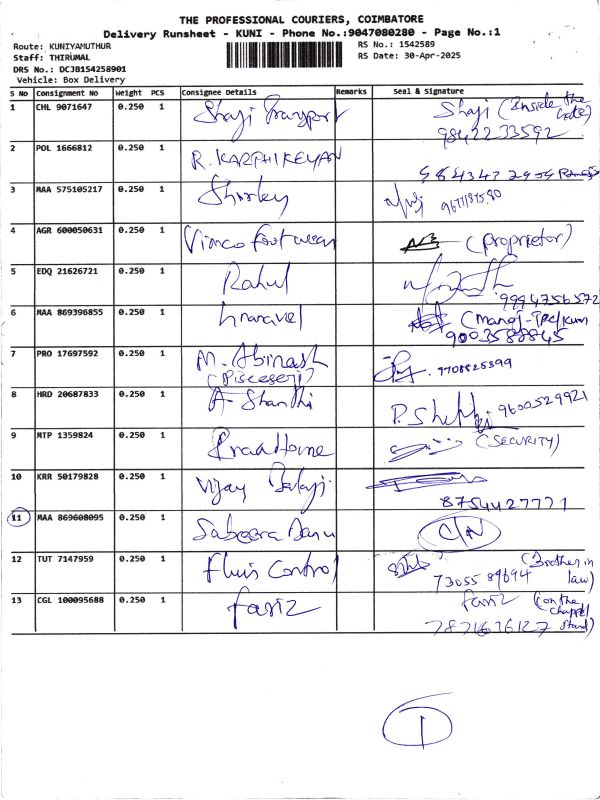 THE PROFESSIONAL COURIERS, COIMBATORE
Delivery Runsheet - KUNI - Phone No.:9047080280 - Page No.:1
Route: KUNIYAMUTHUR
RS No.: 1542589
Staff: THIRUMAL
RS Date: 30-Apr-2025
DRS No.: DCJB154258901
Vehicle: Box Delivery
S No Consignment No Weight PCS Consignee Details Remarks Seal & Signature
1 CHL 9071647 0.250 1 Shaji Transport Shaji (Inside the Gate)
9842233592
2 POL 1666812 0.250 1 R. KARTHIKEYAN
3 MAA 575105217 0.250 1 Shirley
4 AGR 600050631 0.250 1 Vimco Footwear (Proprietor)
5 EDQ 21626721 0.250 1 Rahul
9994756572
6 MAA 869396855 0.250 1
9003588845
7 PRO 17697592 0.250 1 M. Abinash 7708825399
8 HRD 20687833 0.250 1 A. Shanthi 9600529921
9 MTP 1359824 0.250 1 (SECURITY)
10 KRR 50179828 0.250 1 Vijay Balaji
8754427771
11 MAA 869608095 0.250 1 Sabeera Banu C/N
12 TUT 7147959 0.250 1 Fluis Control (Brother in law)
13 CGL 100095688 0.250 1 Fariz Fariz (on the stand)
7871636127
1